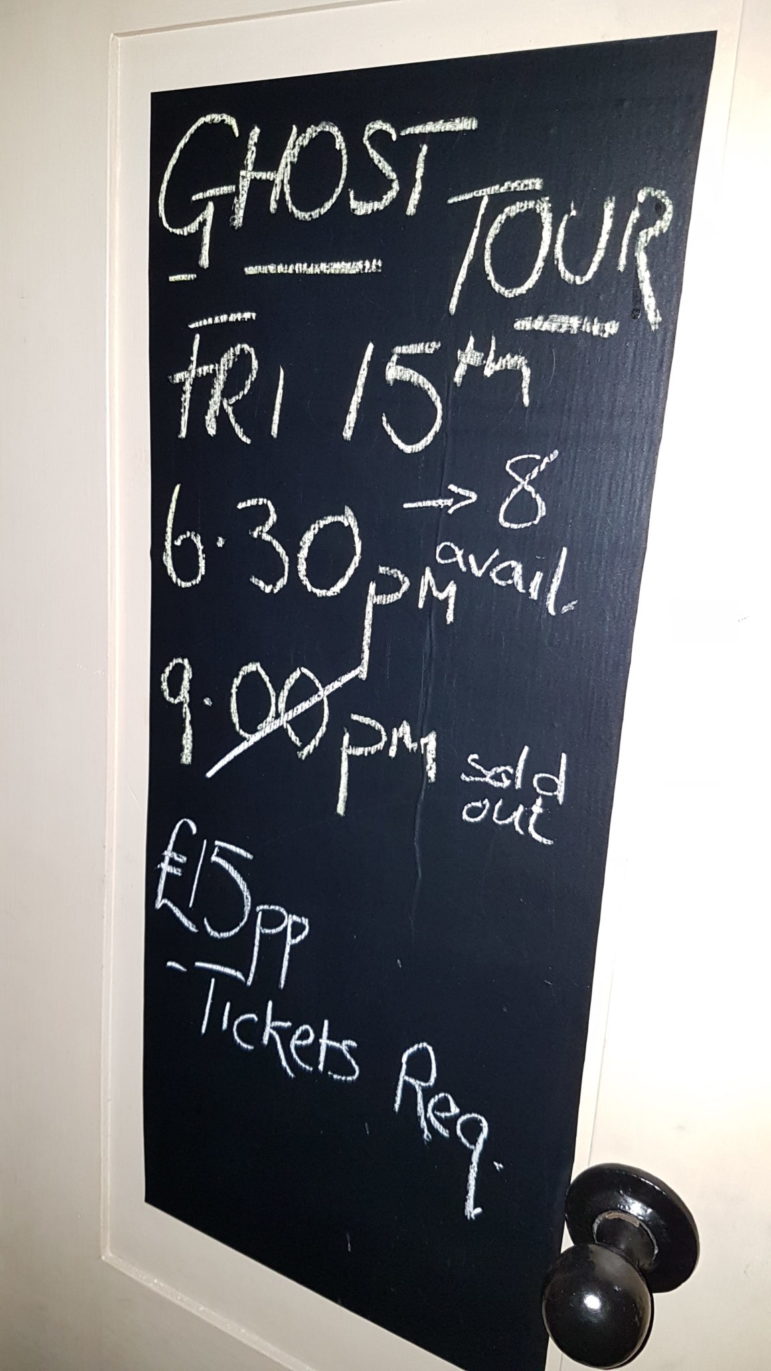 GHOST TOUR
FRI 15th
6.30pm → 8 avail.
9.00pm sold out
£15pp
-Tickets Req.